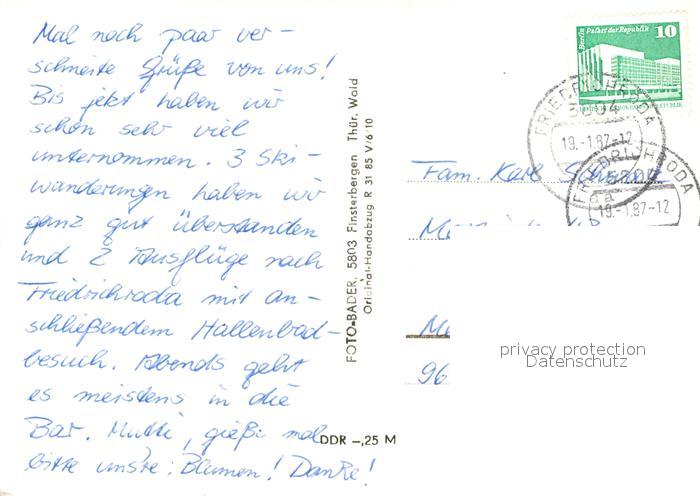 Mal noch paar ver-
schneite Grüße von uns!
Bis jetzt haben wir
schon sehr viel
unternommen. 3 Ski-
wanderungen haben wir
ganz gut überstanden
und 2 Ausflüge nach
Friedrichroda mit an-
schließendem Hallenbad-
besuch. Abends geht
es meistens in die
Bar. Mutti, gieße mal
bitte unsre Blumen! Danke!
FOTO-BADER, 5803 Finsterbergen Thür. Wald
Original-Handabzug R 31 85 V/6 10
DDR -,25 M
Berlin Palast der Republik 10
FRIEDRICHRODA
5804
19.-1.87-12
FRIEDRICHRODA
5804
aa
19.-1.87-12
Fam. Karl
96
privacy protection
Datenschutz